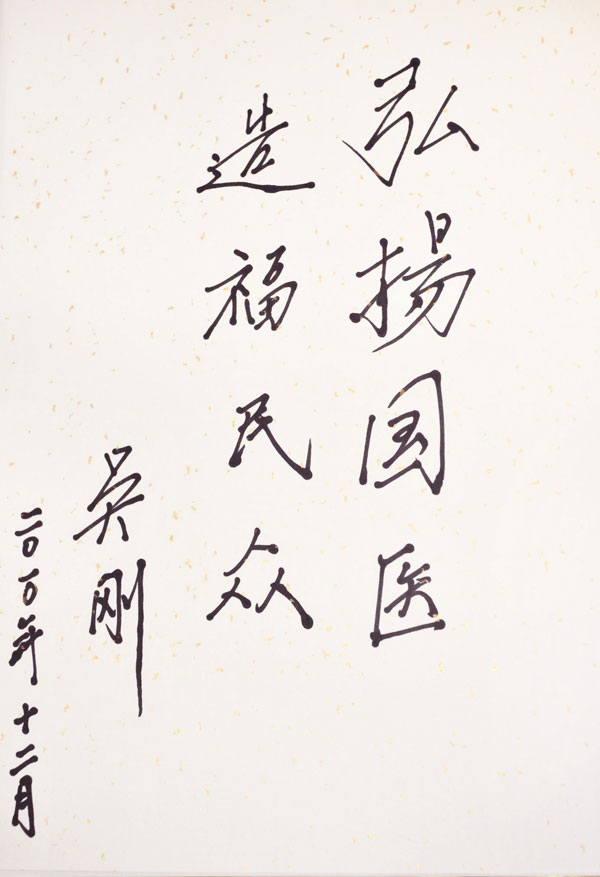 弘揚国医
造福民众
吴刚
二〇一〇年十二月